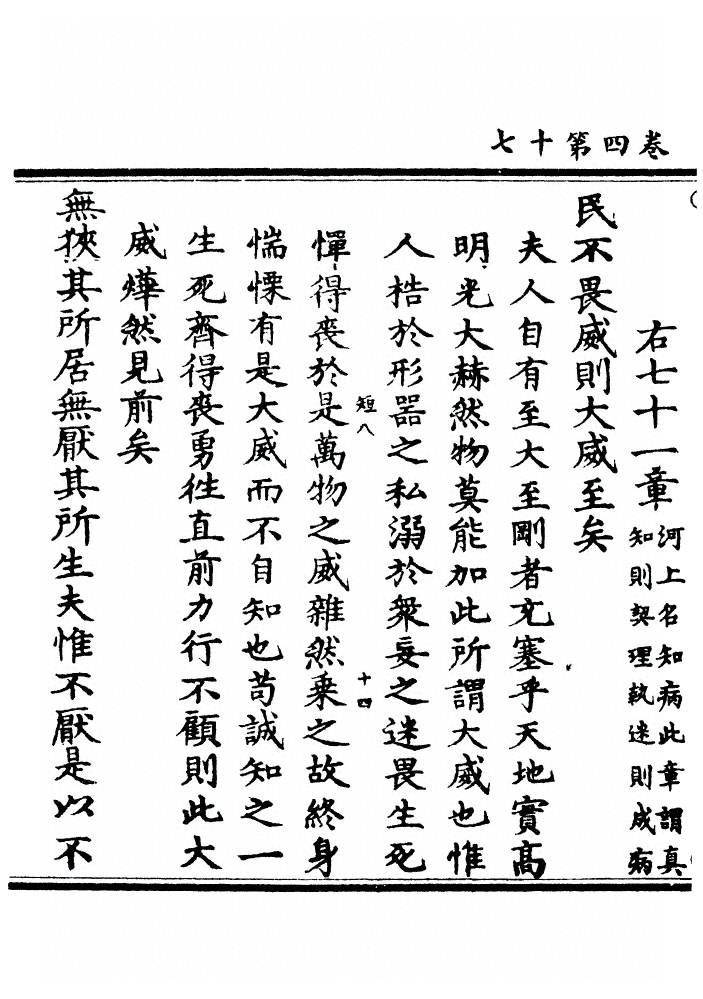 七十第四卷
右七十一章河上名知病此章謂真
知則契理執迷則成病
民不畏威則大威至矣
夫人自有至大至剛者充塞乎天地實高
明光大赫然物莫能加此所謂大威也惟
人梏於形器之私溺於衆妄之迷畏生死
憚得喪於是萬物之威雜然乗之故終身
短八
十四
惴慄有是大威而不自知也苟誠知之一
生死齊得喪勇徃直前力行不顧則此大
威燁然見前矣
無狹其所居無厭其所生夫惟不厭是以不